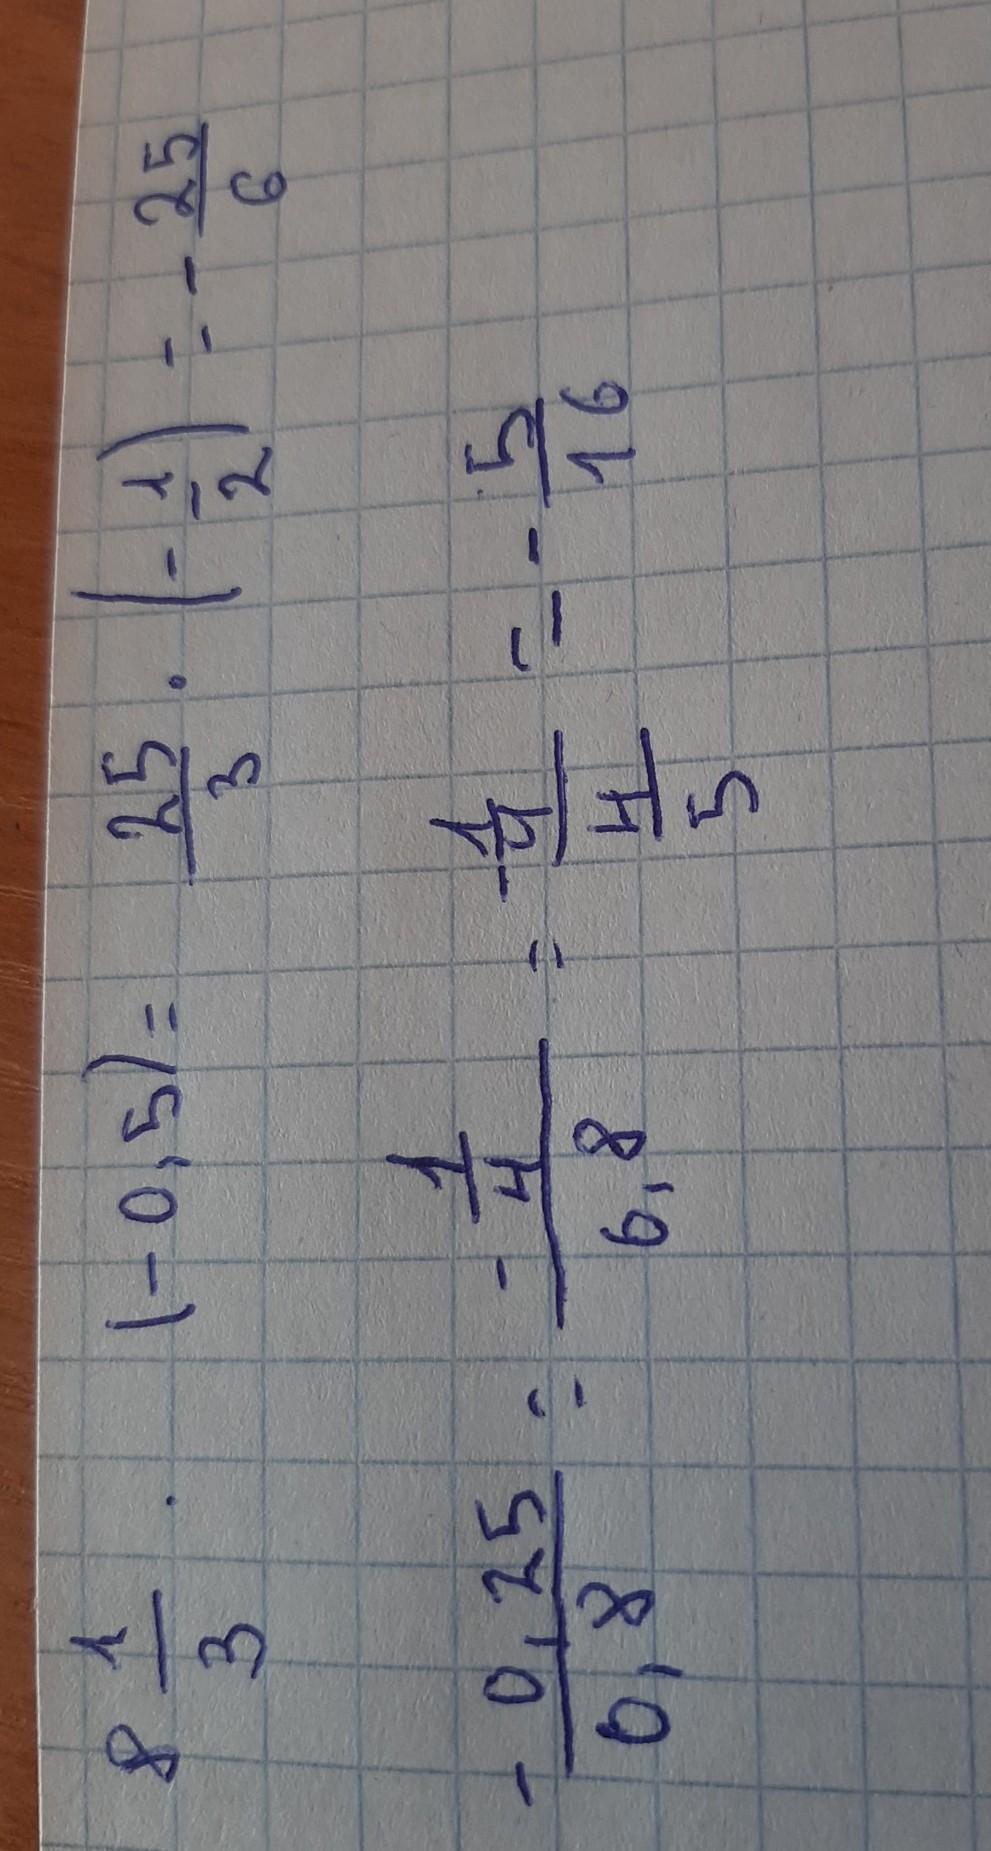 8 1/3 · (-0,5) = 25/3 · (-1/2) = -25/6
-0,25/0,8 = (-1/4)/0,8 = (-1/4)/(4/5) = -5/16